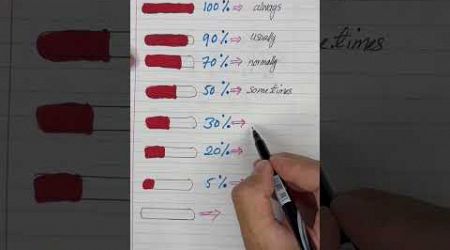 100% ⇒ always
90% ⇒ usualy
70% ⇒ normaly
50% ⇒ sometimes
30% ⇒
20% ⇒
5% ⇒
⇒